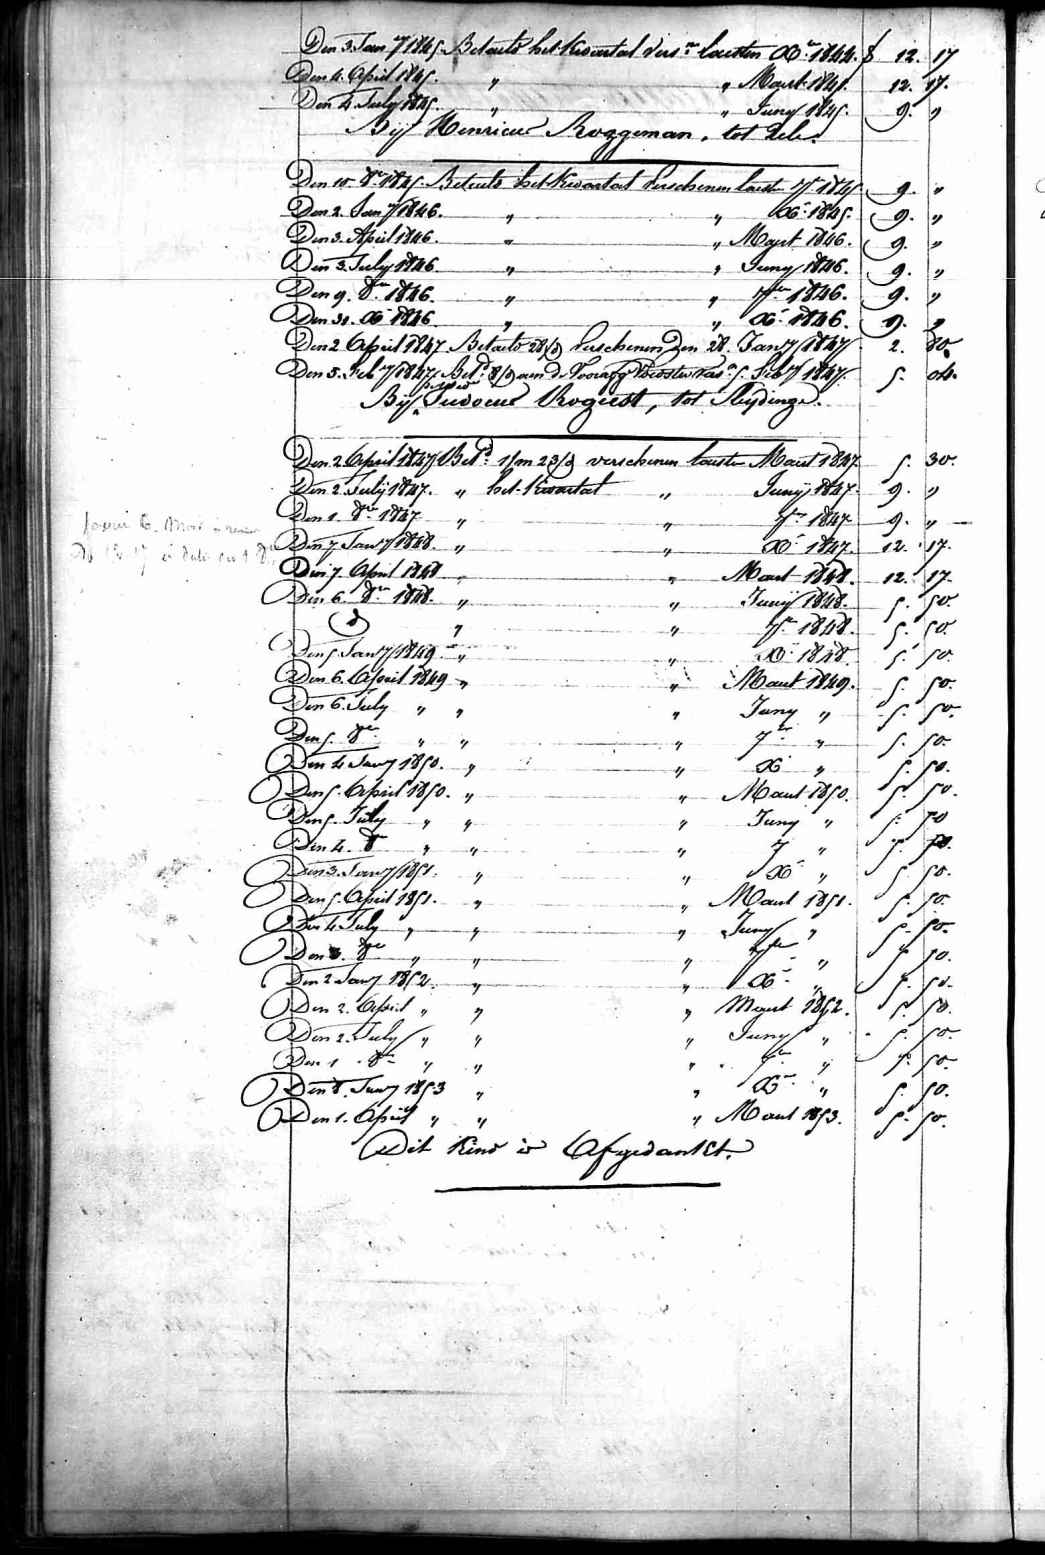 Den 3. Jany 1845. Betaelt het kwartal vers.n laesten Xr 1844. f 12. 17
Den 4. April 1845. " " Maert 1845. 12. 17.
Den 4. July 1845. " " Juny 1845. 9. "
Bij Henricus Roggeman, tot
Den 10. 8r 1845. Betaelt het kwartal verschenen laesten 7r 1845 9. "
Den 2. Jany 1846. " " Xr 1845. 9. "
Den 3. April 1846. " " Maert 1846. 9. "
Den 3. July 1846. " " Juny 1846. 9. "
Den 9. 8r 1846. " " 7r 1846. 9. "
Den 31. Xr 1846. " " Xr 1846. 9. "
Den 2 April 1847. Betaelt 28/d verschenen den 28. Jany 1847. 2. 80.
Den 5. Feby 1847. Bet.d 5. Feby 1847. 5. 04.
Bij Judocus Rogiest, tot Sleydinge.
Den 2. April 1847 Bet.d 1/m 23/d verschenen laesten Maert 1847. 5. 30.
Den 2. July 1847. " het kwartal " Juny 1847. 9. "
Den 1. 8r 1847 " " 7r 1847 9. "
Den 7 Jany 1848. " " Xr 1847. 12. 17.
Den 7. April 1848 " " Maert 1848. 12. 17.
Den 6. 8r 1848. " " Juny 1848. 5. 50.
d " " 7r 1848. 5. 50.
Den 5 Jany 1849 " " Xr 1848 5. 50.
Den 6. April 1849 " " Maert 1849. 5. 50.
Den 6. July " " " Juny " 5. 50.
Den 5. 8r " " " 7r " 5. 50.
Den 4 Jany 1850. " " Xr " 5. 50.
Den 5. April 1850. " " Maert 1850. 5. 50.
Den 5. July " " " Juny " 5. 50
Den 4. 8r " " " 7 " 5. 50.
Den 3. Jany 1851. " " Xr " 5. 50.
Den 5. April 1851. " " Maert 1851. 5. 50.
Den 4 July " " " Juny " 5. 50.
Den 3. 8re " " " 7re " 5. 50.
Den 2 Jany 1852. " " Xr " 5. 50.
Den 2. April " " " Maert 1852. 5. 50.
Den 2. July " " " Juny " 5. 50.
Den 1 8r " " " 7r " 5. 50.
Den 8. Jany 1853 " " Xr " 5. 50.
Den 1. April " " " Maert 1853. 5. 50.
Dit kind is Afgedankt.